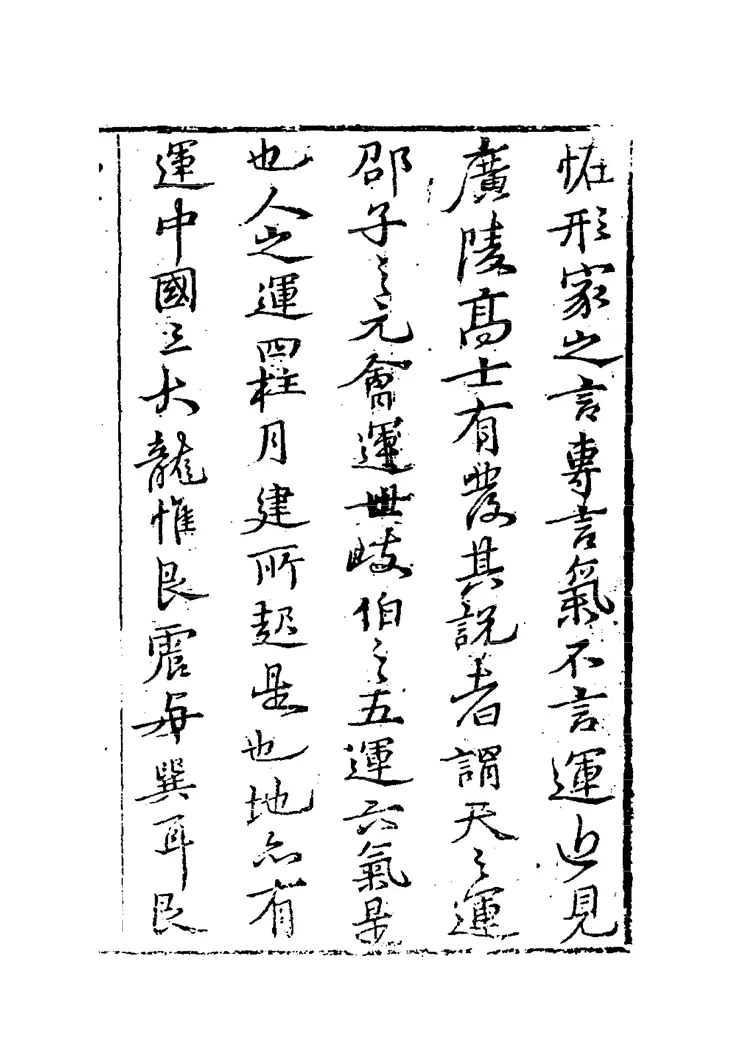 恠形家之言專言氣不言運近見
廣陵高士有發其說者謂天之運
邵子之元會運世岐伯之五運六氣是
也人之運四柱月建所起是也地亦有
運中國三大龍惟艮震與巽耳艮